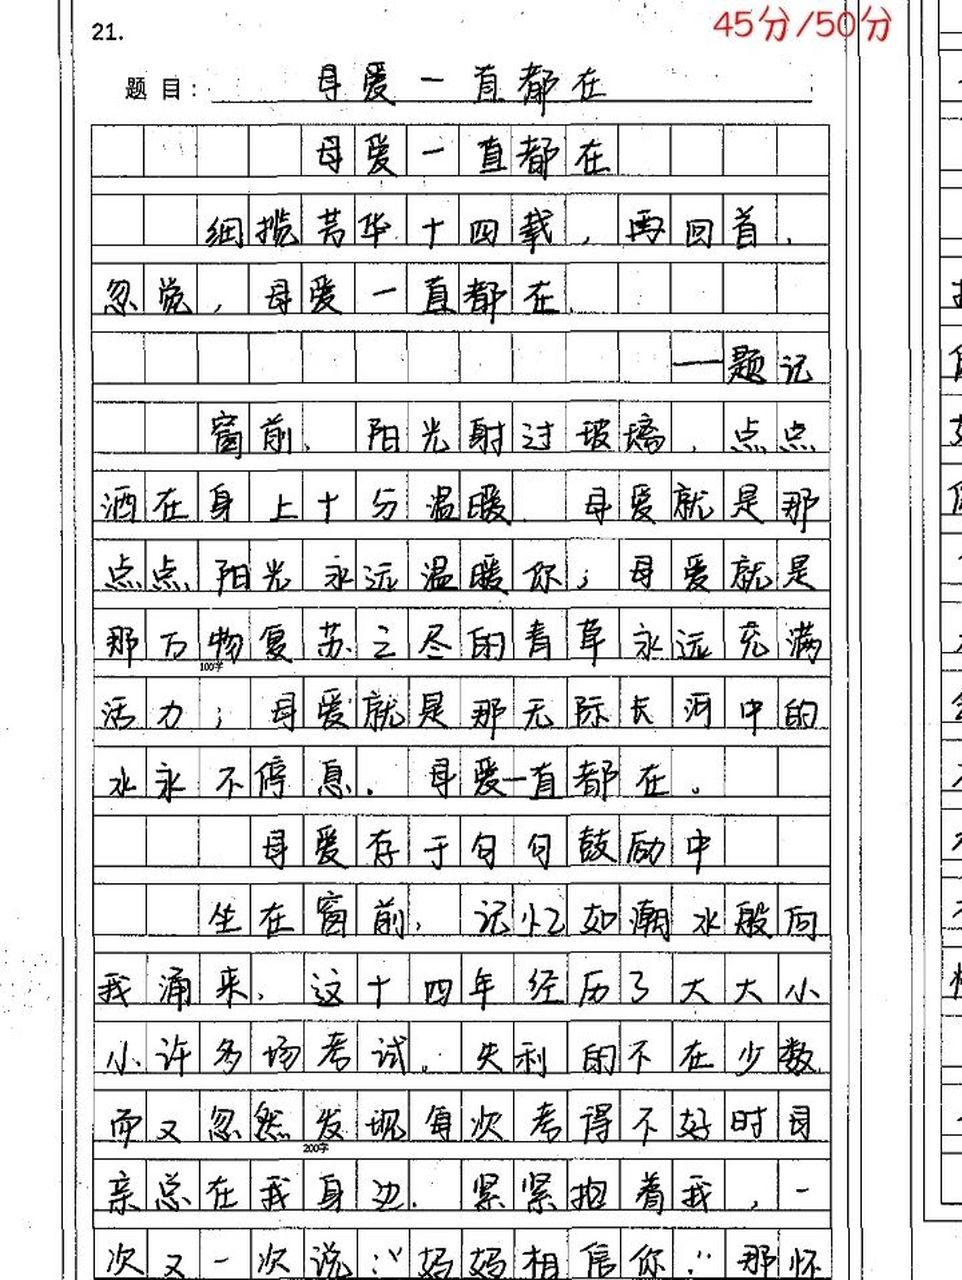 45分/50分
21.
题目:母爱一直都在
母爱一直都在
细揽芳华十四载,再回首,
忽觉,母爱一直都在
——题记
窗前,阳光射过玻璃,点点
洒在身上十分温暖.母爱就是那
点点阳光永远温暖你;母爱就是
那万物复苏之尽的青草永远充满
100字
活力;母爱就是那无际长河中的
水永不停息。母爱一直都在。
母爱存于句句鼓励中
坐在窗前,记忆如潮水般向
我涌来,这十四年经历了大大小
小许多场考试。失利的不在少数
而又忽然发现每次考得不好时母
200字
亲总在我身边.紧紧抱着我,一
次又一次说:“妈妈相信你.”那怀